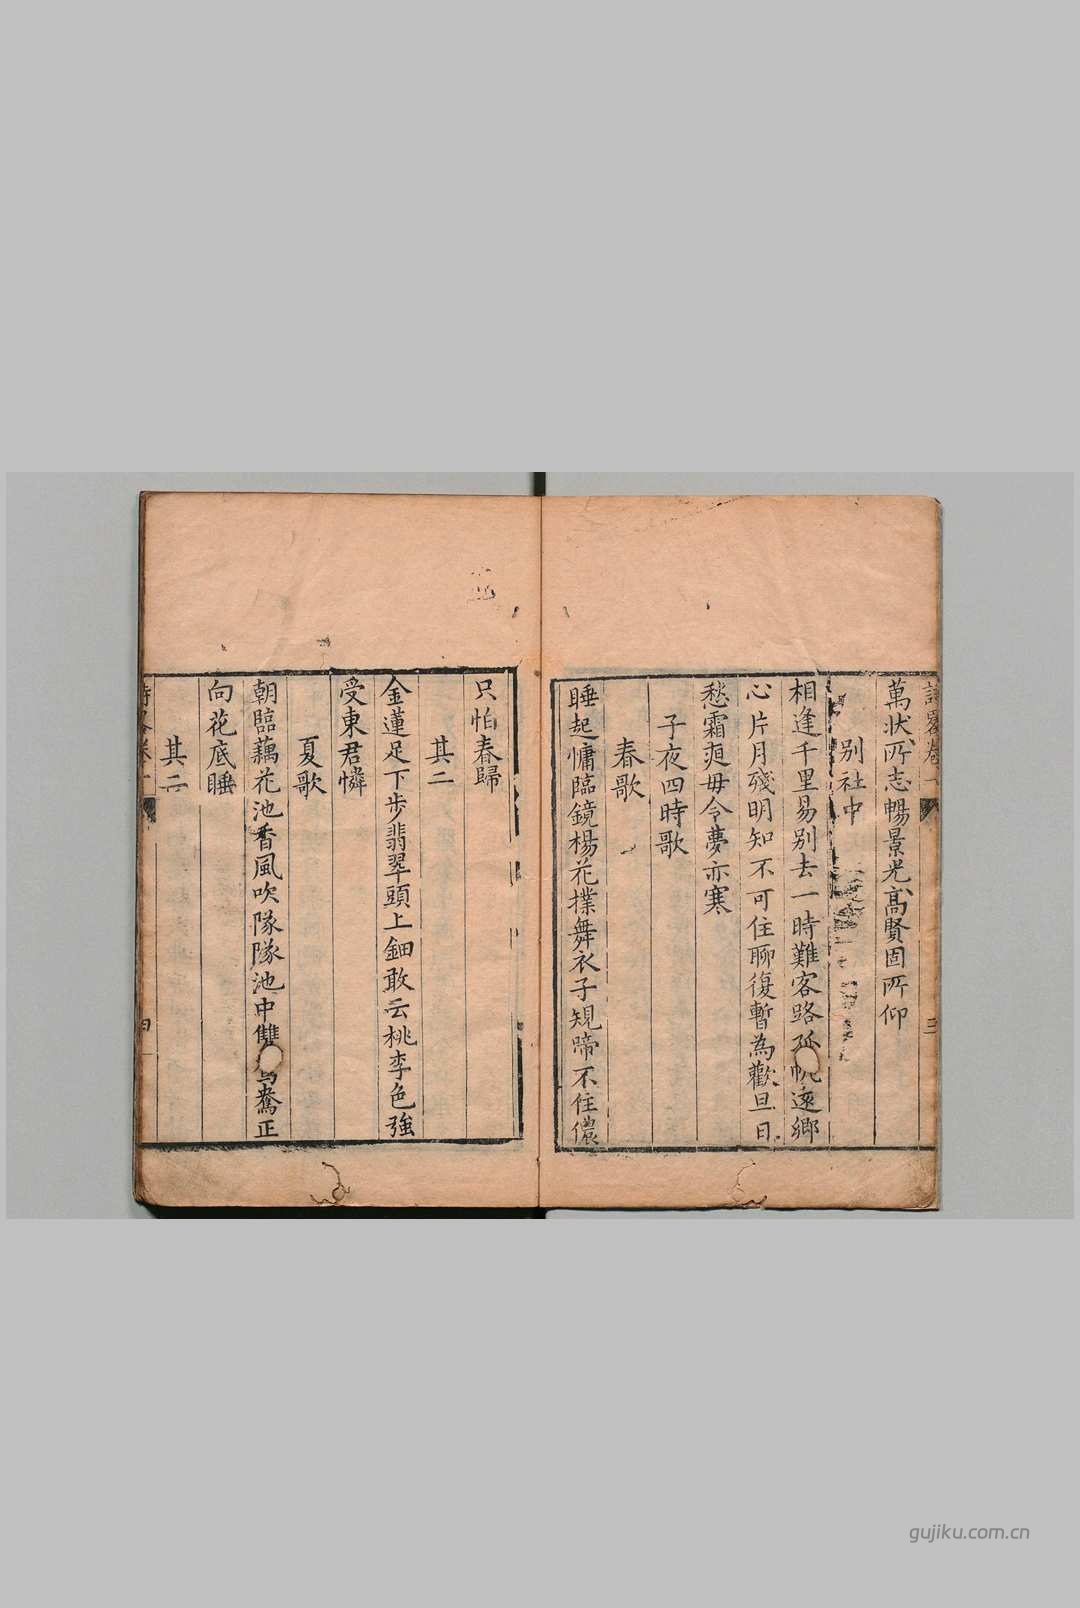 詩畧卷一
三
萬狀所志暢景光高賢固所仰
別社中
相逢千里易別去一時難客路孤帆遠鄉
心片月殘明知不可住聊復暫為歡旦日
愁霜逈毋令夢亦寒
子夜四時歌
春歌
睡起慵臨鏡楊花撲舞衣子規啼不住儂
只怕春歸
其二
金蓮足下步翡翠頭上鈿敢云桃李色強
受東君憐
夏歌
朝臨藕花池香風吹隊隊池中雙鴦正
向花底睡
其二
詩畧卷一
四
gujiku.com.cn